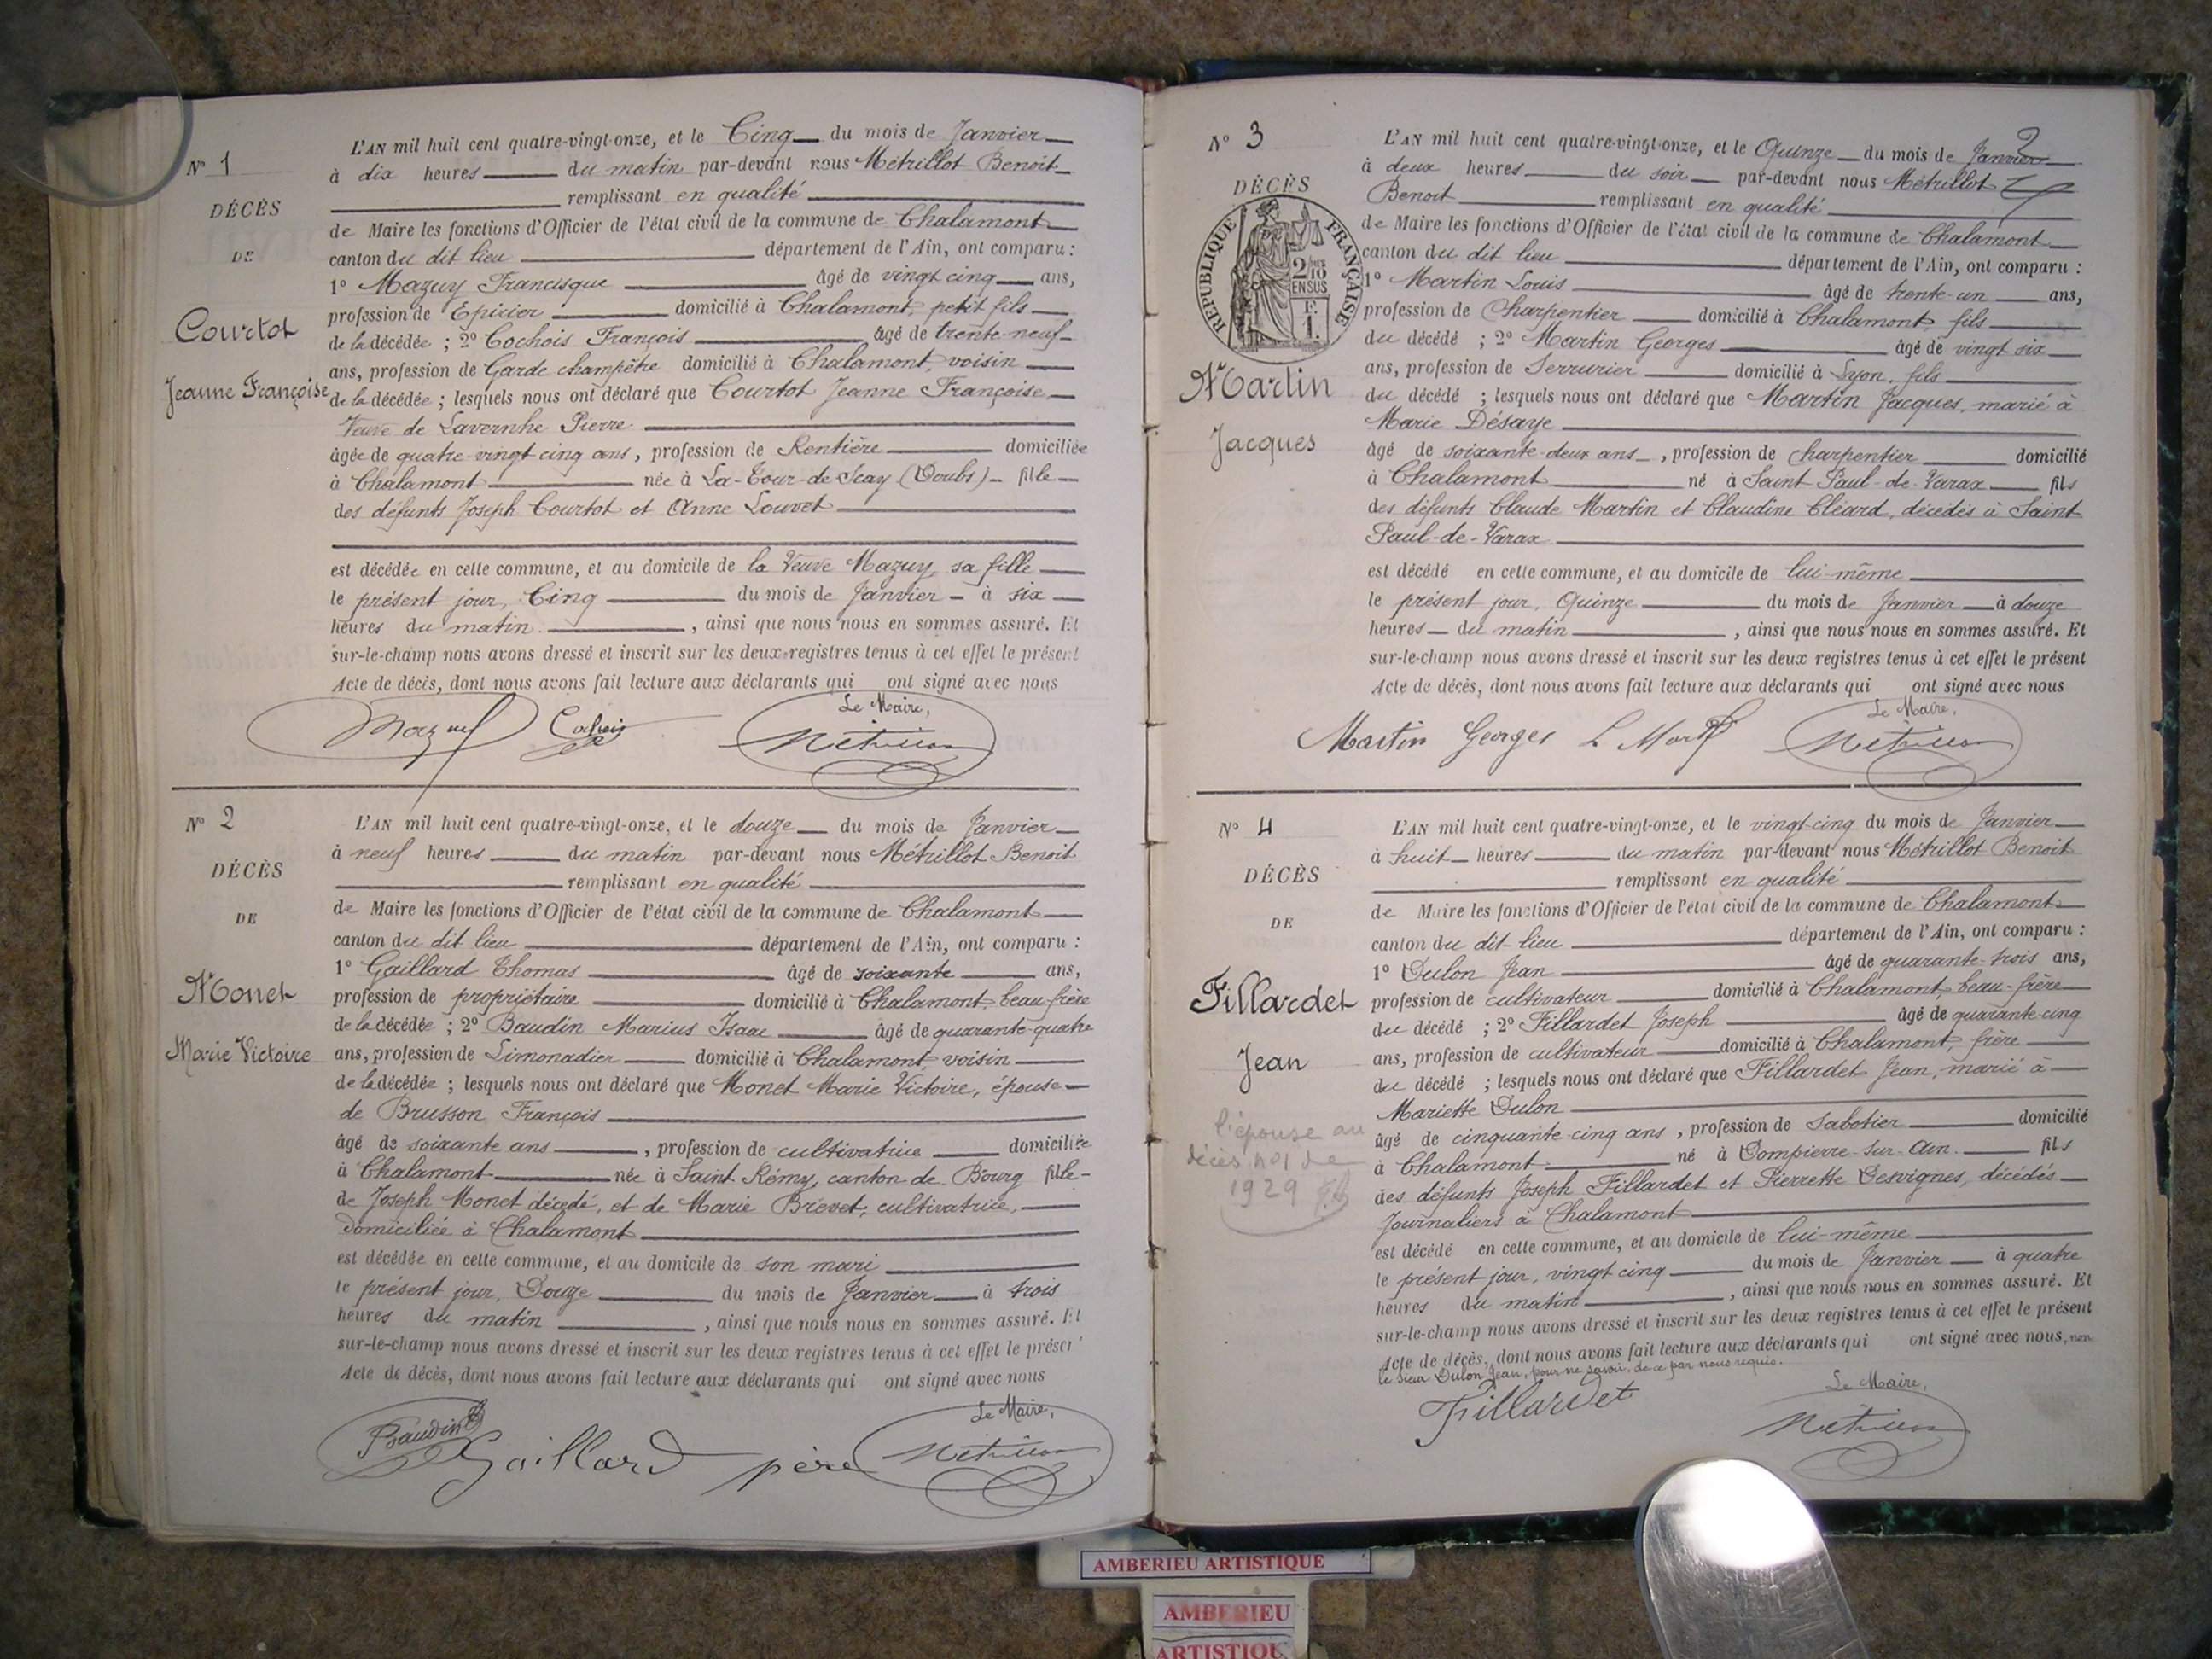 N° 1
DÉCÈS
DE
Courtot
Jeanne Françoise
L'AN mil huit cent quatre-vingt-onze, et le Cinq du mois de Janvier
à dix heures du matin par-devant nous Métrillot Benoit
remplissant en qualité
de Maire les fonctions d'Officier de l'état civil de la commune de Chalamont
canton du dit lieu département de l'Ain, ont comparu :
1° Mazuy Francisque âgé de vingt cinq ans,
profession de Epicier domicilié à Chalamont, petit fils
de la décédée ; 2° Cochois François âgé de trente-neuf
ans, profession de Garde champêtre domicilié à Chalamont, voisin
de la décédée ; lesquels nous ont déclaré que Courtot Jeanne Françoise
Veuve de Lavernhe Pierre
âgée de quatre-vingt cinq ans, profession de Rentière domiciliée
à Chalamont née à La-Tour-de-Scay (Doubs) fille
des défunts Joseph Courtot et Anne Louvet
est décédée en cette commune, et au domicile de la Veuve Mazuy, sa fille
le présent jour, Cinq du mois de Janvier à six
heures du matin, ainsi que nous nous en sommes assuré. Et
sur-le-champ nous avons dressé et inscrit sur les deux registres tenus à cet effet le présent
Acte de décès, dont nous avons fait lecture aux déclarants qui ont signé avec nous
Le Maire,
Mazuy Cochois Métrillot
N° 2
DÉCÈS
DE
Monet
Marie Victoire
L'AN mil huit cent quatre-vingt-onze, et le douze du mois de Janvier
à neuf heures du matin par-devant nous Métrillot Benoit
remplissant en qualité
de Maire les fonctions d'Officier de l'état civil de la commune de Chalamont
canton du dit lieu département de l'Ain, ont comparu :
1° Gaillard Thomas âgé de soixante ans,
profession de propriétaire domicilié à Chalamont, beau-frère
de la décédée ; 2° Baudin Marius Isaac âgé de quarante-quatre
ans, profession de Limonadier domicilié à Chalamont, voisin
de la décédée ; lesquels nous ont déclaré que Monet Marie Victoire, épouse
de Brusson François
âgé de soixante ans, profession de cultivatrice domiciliée
à Chalamont née à Saint Rémy, canton de Bourg fille
de Joseph Monet décédé, et de Marie Brevet, cultivatrice,
domiciliée à Chalamont
est décédée en cette commune, et au domicile de son mari
le présent jour, Douze du mois de Janvier à trois
heures du matin, ainsi que nous nous en sommes assuré. Et
sur-le-champ nous avons dressé et inscrit sur les deux registres tenus à cet effet le présent
Acte de décès, dont nous avons fait lecture aux déclarants qui ont signé avec nous
Le Maire,
Baudin Gaillard père Métrillot
2
N° 3
DÉCÈS
RÉPUBLIQUE FRANÇAISE
2/10
EN SUS
Martin
Jacques
L'AN mil huit cent quatre-vingt-onze, et le Quinze du mois de Janvier
à deux heures du soir par-devant nous Métrillot
Benoit remplissant en qualité
de Maire les fonctions d'Officier de l'état civil de la commune de Chalamont
canton du dit lieu département de l'Ain, ont comparu :
1° Martin Louis âgé de trente-un ans,
profession de Charpentier domicilié à Chalamont, fils
du décédé ; 2° Martin Georges âgé de vingt six
ans, profession de Serrurier domicilié à Lyon, fils
du décédé ; lesquels nous ont déclaré que Martin Jacques, marié à
Marie Désaye
âgé de soixante-deux ans, profession de charpentier domicilié
à Chalamont né à Saint Paul-de-Varax fils
des défunts Claude Martin et Claudine Cléard, décédés à Saint
Paul-de-Varax
est décédé en cette commune, et au domicile de lui-même
le présent jour, Quinze du mois de Janvier à douze
heures du matin, ainsi que nous nous en sommes assuré. Et
sur-le-champ nous avons dressé et inscrit sur les deux registres tenus à cet effet le présent
Acte de décès, dont nous avons fait lecture aux déclarants qui ont signé avec nous
Le Maire,
Martin Georges L Martin Métrillot
N° 4
DÉCÈS
DE
Fillardet
Jean
l'épouse au
décès n°1 de
1929
L'AN mil huit cent quatre-vingt-onze, et le vingt-cinq du mois de Janvier
à huit heures du matin par-devant nous Métrillot Benoit
remplissant en qualité
de Maire les fonctions d'Officier de l'état civil de la commune de Chalamont
canton du dit lieu département de l'Ain, ont comparu :
1° Dulon Jean âgé de quarante-trois ans,
profession de cultivateur domicilié à Chalamont, beau-frère
du décédé ; 2° Fillardet Joseph âgé de quarante-cinq
ans, profession de cultivateur domicilié à Chalamont, frère
du décédé ; lesquels nous ont déclaré que Fillardet Jean, marié à
Mariette Dulon
âgé de cinquante-cinq ans, profession de Sabotier domicilié
à Chalamont né à Dompierre-sur-Ain fils
des défunts Joseph Fillardet et Pierrette Desvignes, décédés
Journaliers à Chalamont
est décédé en cette commune, et au domicile de lui-même
le présent jour, vingt cinq du mois de Janvier à quatre
heures du matin, ainsi que nous nous en sommes assuré. Et
sur-le-champ nous avons dressé et inscrit sur les deux registres tenus à cet effet le présent
Acte de décès, dont nous avons fait lecture aux déclarants qui ont signé avec nous, non
le sieur Dulon Jean, pour ne savoir, de ce par nous requis.
Le Maire,
Fillardet Métrillot
AMBERIEU ARTISTIQUE
AMBERIEU
ARTISTIQU